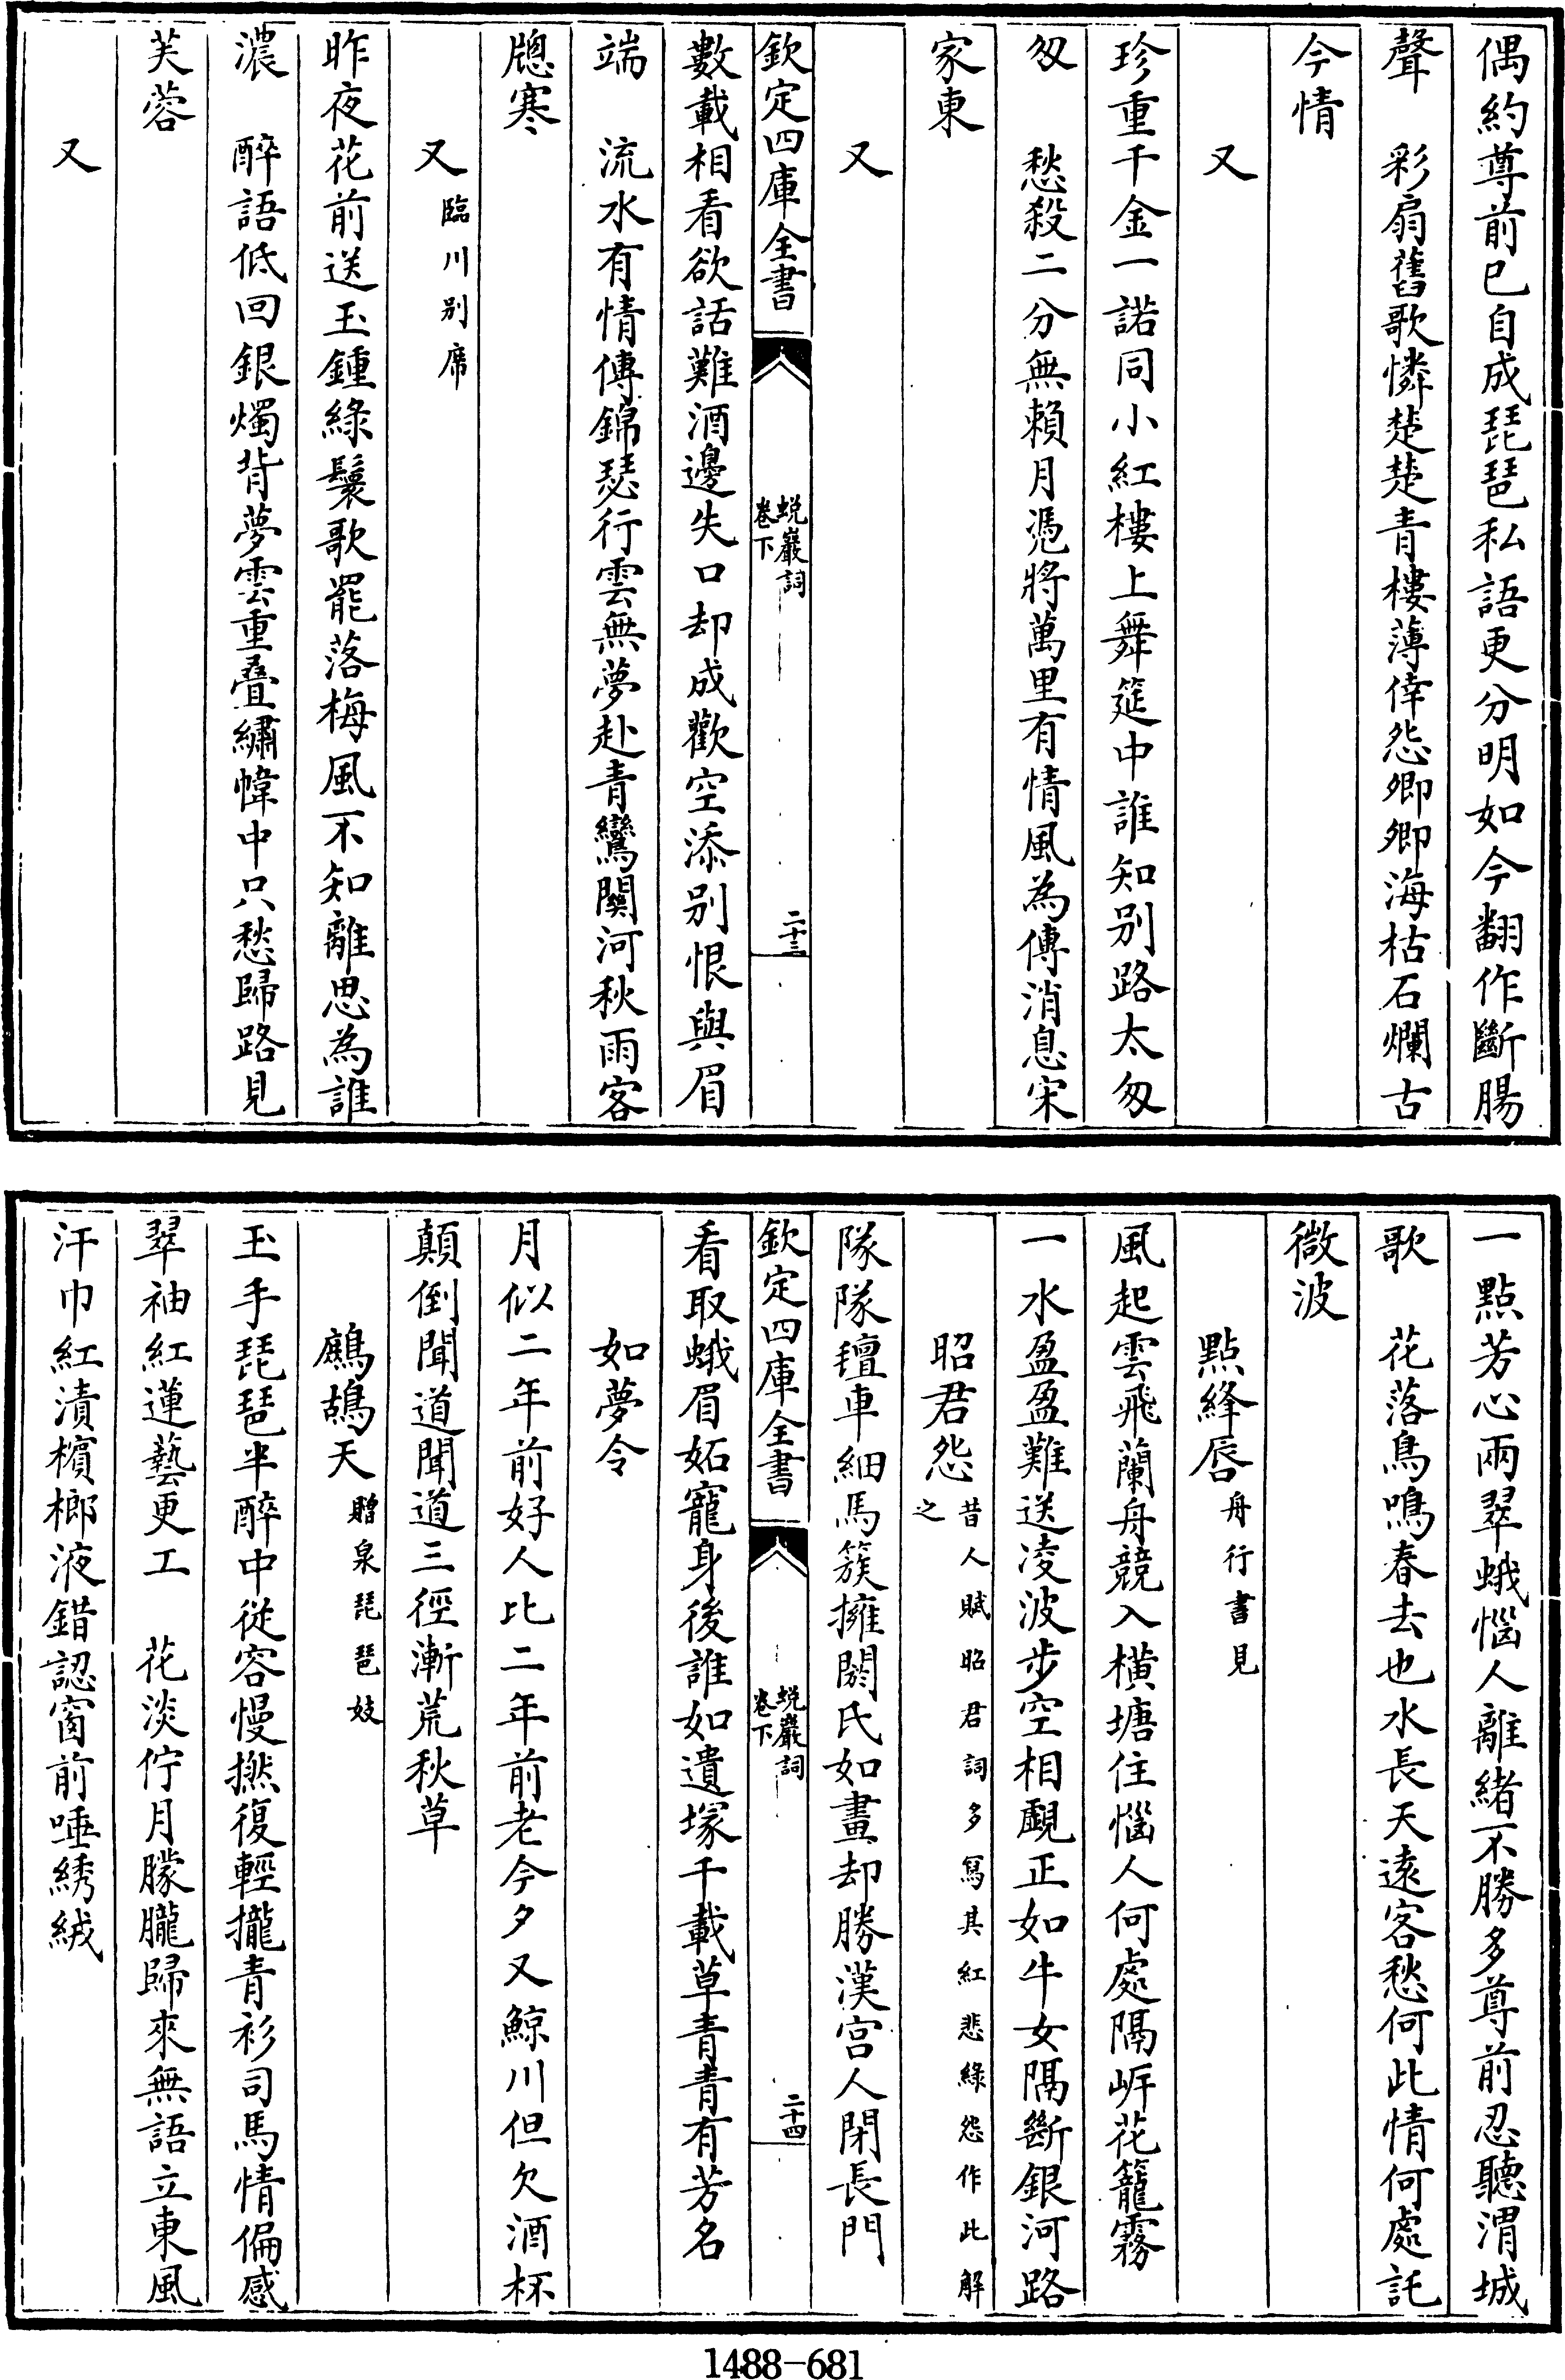 偶約尊前已自成琵琶私語更分明如今翻作斷腸
聲　彩扇舊歌憐楚楚青樓薄倖怨卿卿海枯石爛古
今情
又
珍重千金一諾同小紅樓上舞筵中誰知别路太匆
匆　愁殺二分無賴月凴將萬里有情風為傳消息宋
家東
又
欽定四庫全書
蛻巖詞
卷下
二十三
數載相看欲話難酒邊失口却成歡空添别恨與眉
端　流水有情傳錦瑟行雲無夢赴青鸞關河秋雨客
牕寒
又臨川别席
昨夜花前送玉鍾綠鬟歌罷落梅風不知離思為誰
濃　醉語低回銀燭背夢雲重疊繡幃中只愁歸路見
芙蓉
又
一點芳心兩翠蛾惱人離緒不勝多尊前忍聽渭城
歌　花落鳥鳴春去也水長天遠客愁何此情何處託
微波
點絳唇舟行書見
風起雲飛蘭舟競入橫塘住惱人何處隔岍花籠霧
一水盈盈難送凌波步空相覷正如牛女隔斷銀河路
昭君怨昔人賦昭君詞多寫其紅悲綠怨作此解
之
隊隊氊車細馬簇擁閼氏如畫却勝漢宫人閉長門
欽定四庫全書
蛻巖詞
卷下
二十四
看取蛾眉妬寵身後誰如遺塚千載草青青有芳名
如夢令
月似二年前好人比二年前老今夕又鯨川但欠酒杯
顛倒聞道聞道三徑漸荒秋草
鷓鴣天贈泉琵琶妓
玉手琵琶半醉中從容慢撚復輕攏青衫司馬情偏感
翠袖紅蓮藝更工　花淡佇月朦朧歸來無語立東風
汗巾紅漬檳榔液錯認窗前唾綉絨
1488-681